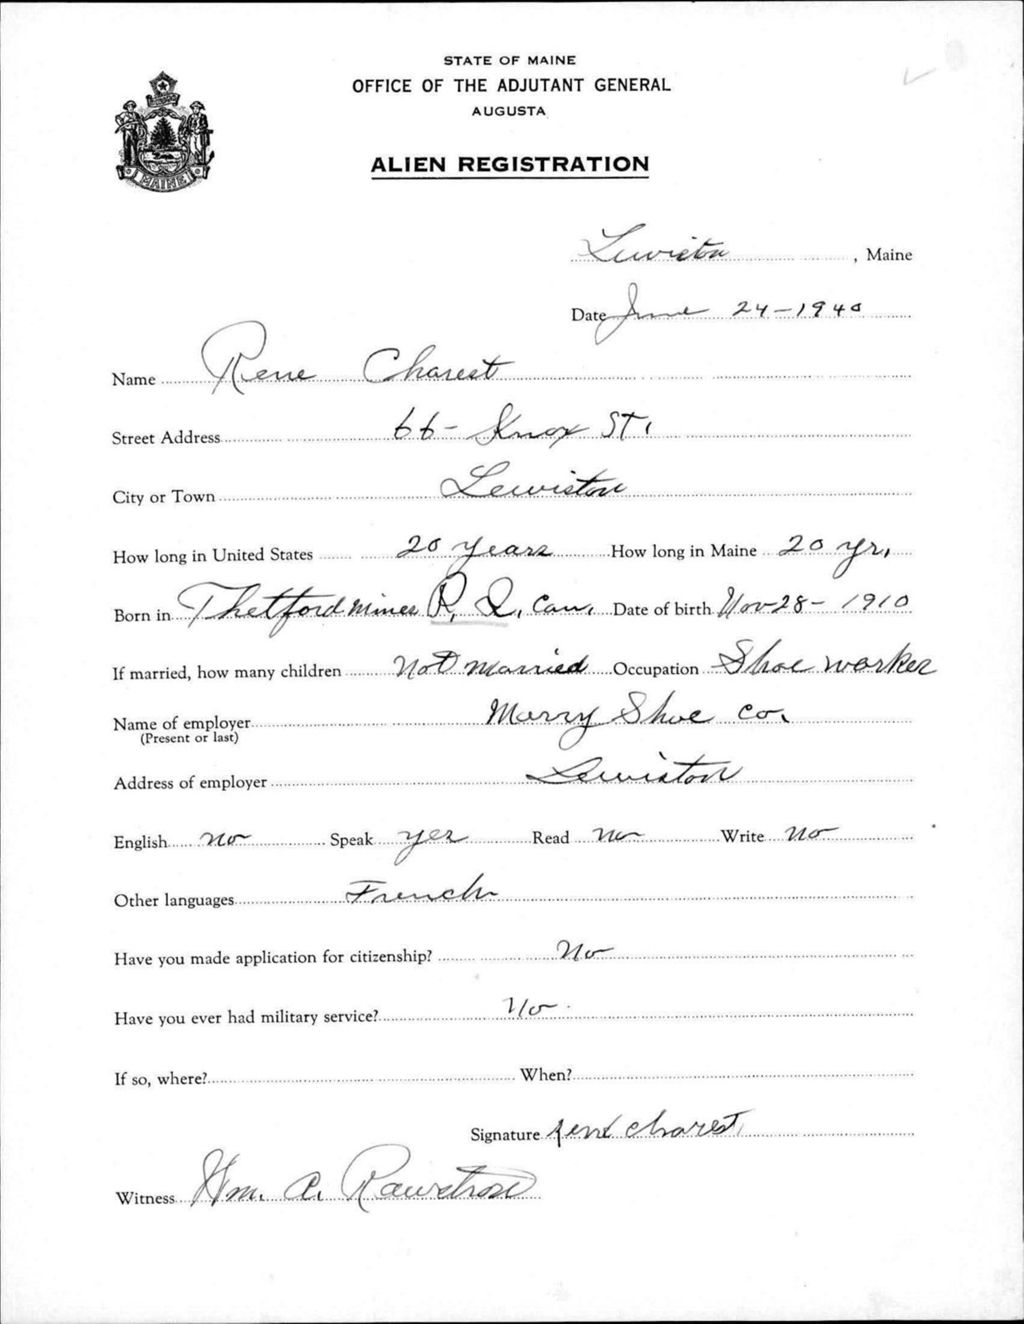 STATE OF MAINE
OFFICE OF THE ADJUTANT GENERAL
AUGUSTA
MAINE
ALIEN REGISTRATION
Lewiston, Maine
Date June 24-1940
Name Rene Charest
Street Address 66- Knox ST.
City or Town Lewiston
How long in United States 20 years How long in Maine 20 yr.
Born in Thetford mines P. Q. Can. Date of birth Nov-28-1910
If married, how many children Not married Occupation Shoe worker
Name of employer Marry Shoe Co.
(Present or last)
Address of employer Lewiston
English No Speak yes Read No Write No
Other languages French
Have you made application for citizenship? No
Have you ever had military service? No
If so, where? When?
Signature Rene Charest
Witness Wm. A. Rawstron